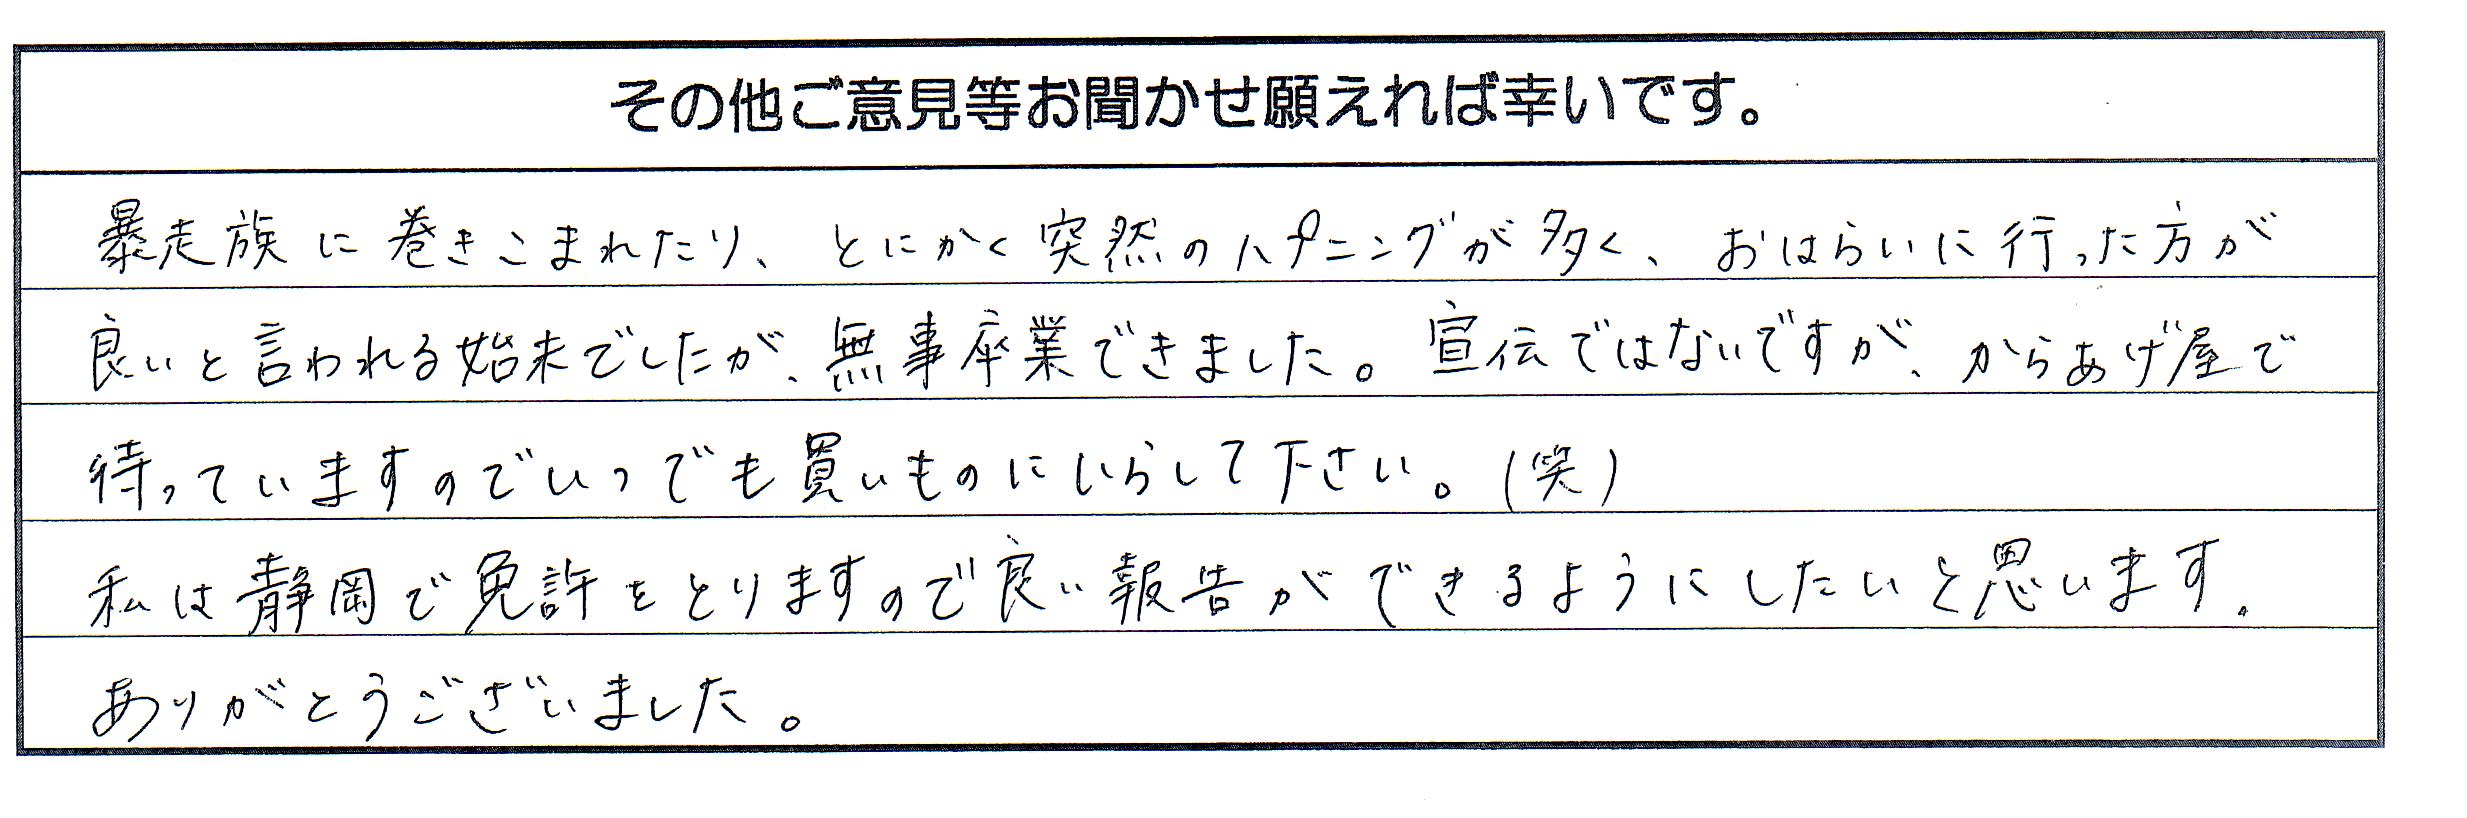 その他ご意見等お聞かせ願えれば幸いです。
暴走族に巻きこまれたり、とにかく突然のハプニングが多く、おはらいに行った方が
良いと言われる始末でしたが、無事卒業できました。宣伝ではないですが、からあげ屋で
待っていますのでいつでも買いものにいらして下さい。(笑)
私は静岡で免許をとりますので良い報告ができるようにしたいと思います。
ありがとうございました。